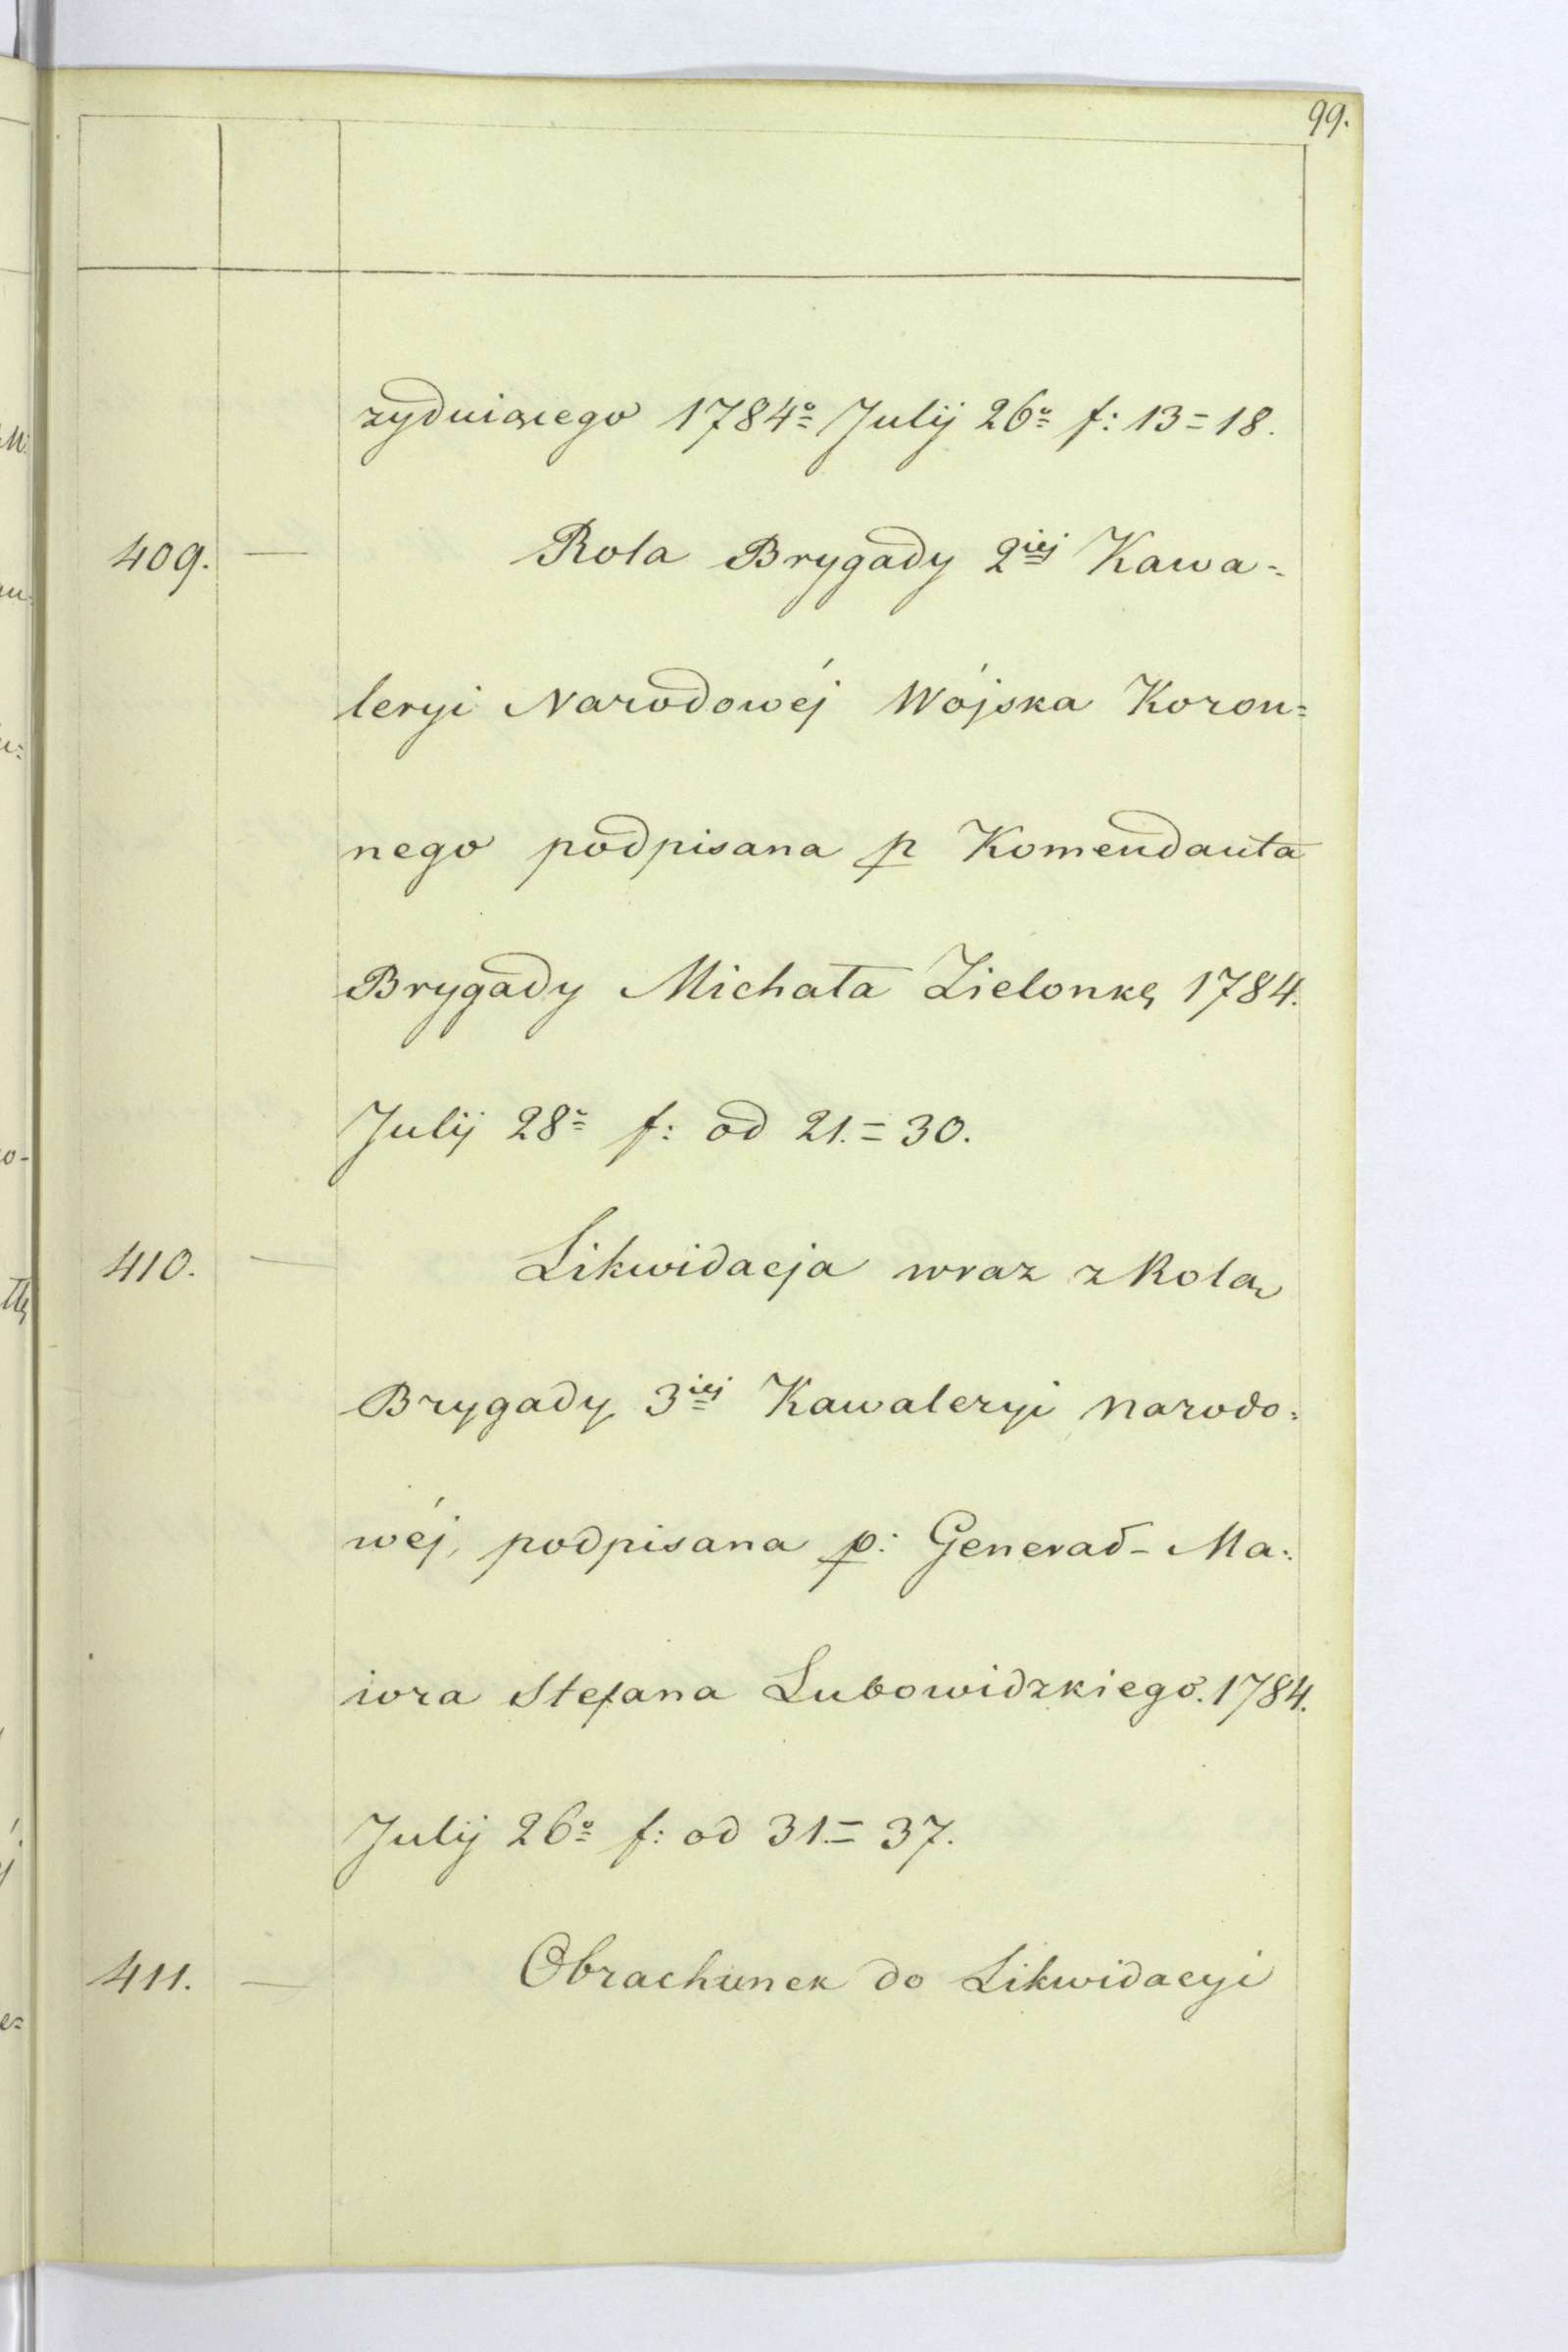 99.
zyduiącego 1784º Julij 26º f: 13=18.
409. — Rola Brygady 2iéj Kawa=
leryi Narodowéj Wójska Koron=
nego podpisana p Komendanta
Brygady Michała Zielonkę 1784.
Julij 28º f: od 21.=30.
410. — Likwidacja wraz z Rolą
Brygady 3iéj Kawaleryi narodo=
wéj, podpisana p: Generał-Ma=
iora Stefana Lubowidzkiego. 1784.
Julij 26º f: od 31.=37.
411. — Obrachunek do Likwidacyi